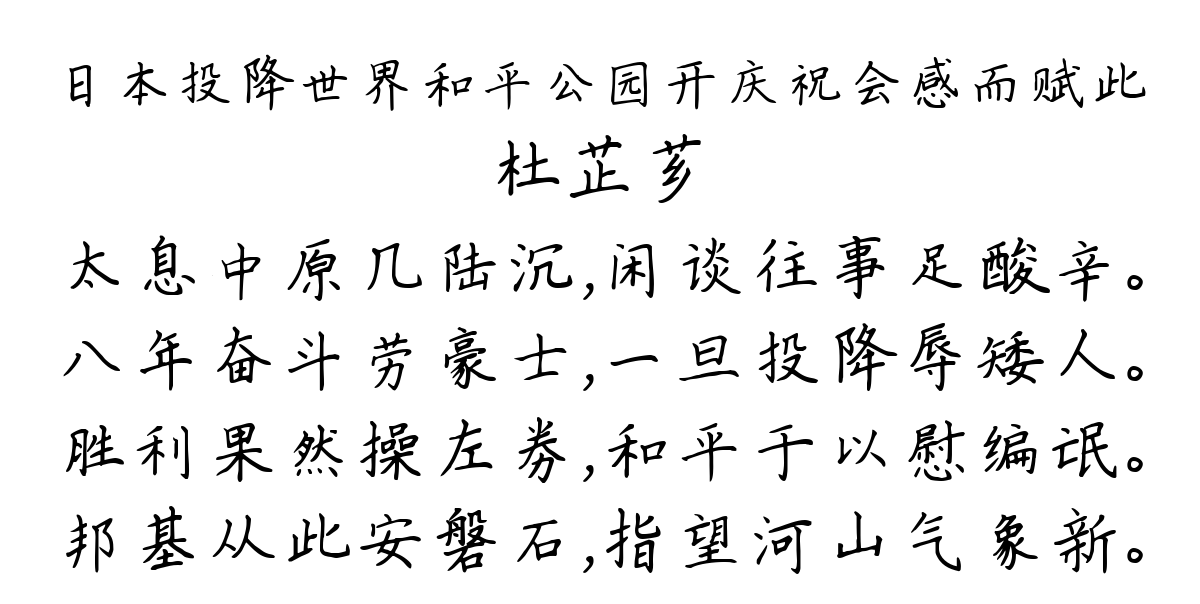 日本投降世界和平公园开庆祝会感而赋此
杜芷芗
太息中原几陆沉,闲谈往事足酸辛。
八年奋斗劳豪士,一旦投降辱矮人。
胜利果然操左券,和平于以慰编氓。
邦基从此安磐石,指望河山气象新。